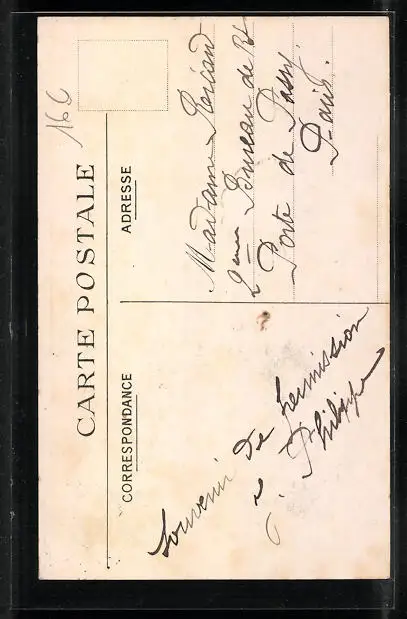 CARTE POSTALE
CORRESPONDANCE
ADRESSE
Souvenir
de permission
Philippe
Madame
2eme Bureau de
Porte de Passy.
Paris.
166